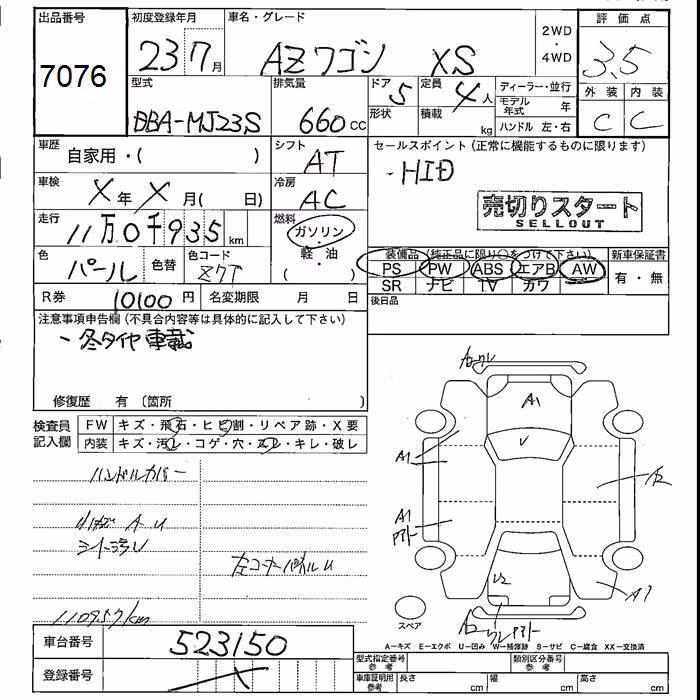 出品番号 7076
初度登録年月 23 7月
車名・グレード AZワゴン XS
2WD・4WD
評価点 3.5
外装 C 内装 C
型式 DBA-MJ23S
排気量 660cc
ドア 5 形状
定員 4人 積載 kg
ディーラー・並行
モデル年式 年
ハンドル 左・右
車歴 自家用・( )
シフト AT
セールスポイント(正常に機能するものに限ります)
・HID
車検 X年X月( 日)
冷房 AC
売切りスタート
SELLOUT
走行 11万0千935km
燃料 ガソリン・軽・油( )
色 パール 色替 色コード Z7T
装備品(純正品に限り○をつけて下さい) 新車保証書
PS PW ABS エアB AW 有・無
SR ナビ TV カワ
R券 10100円 名変期限 月 日
後日品
注意事項申告欄(不具合内容等は具体的に記入して下さい)
・冬タイヤ車載
修復歴 有〔箇所 〕
検査員記入欄
FW キズ・飛石・ヒビ割・リペア跡・X要
内装 キズ・汚レ・コゲ・穴・スレ・キレ・破レ
ハンドルカバー
A U
シート汚レ
左コーナーパネルU
110957km
A1
V
A1
A2
A1
U2
A1
スペア
A-キズ E-エクボ U-凹み W-補修跡 S-サビ C-腐食 XX-交換済
車台番号 523150
登録番号
型式指定番号 参考
類別区分番号 参考
車庫証明用 参考 長さ cm 幅 cm 高さ cm